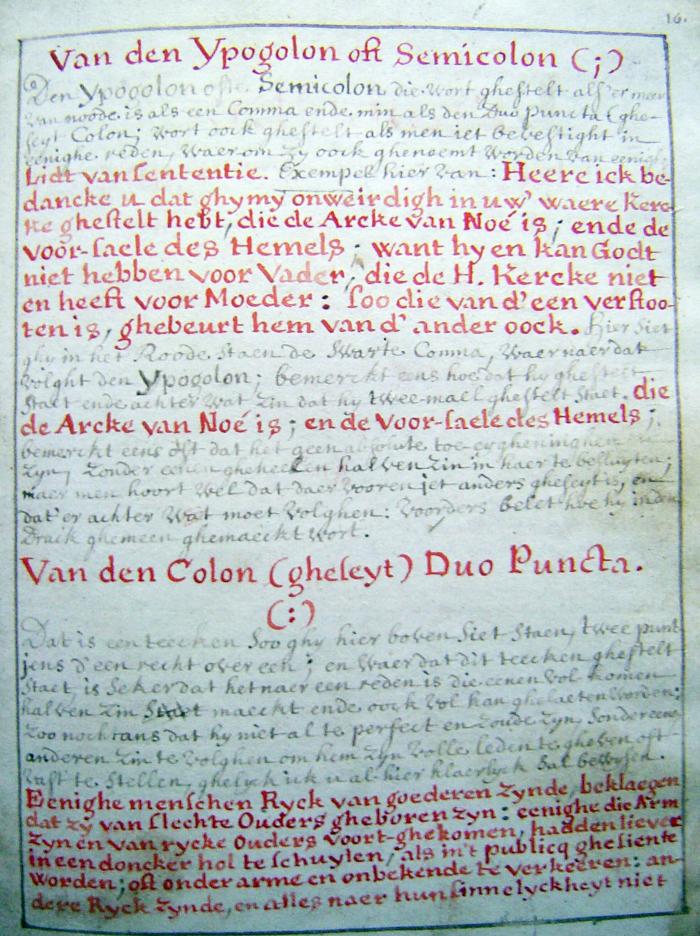 16.
Van den Ypogolon oft Semicolon (;)
Den Ypogolon ofte Semicolon die wort ghestelt als'er meer
van noode is als een Comma ende min als den Duo Puncta (ghe-
seyt Colon; wort oock ghestelt als men iet bevestight in
eenighe reden, waerom zy oock ghenoemt worden van eenighe
Lidt van sententie. Exempel hier van: Heere ick be-
dancke u dat ghy my onweirdigh in uw' waere Kerc-
ke ghestelt hebt, die de Arcke van Noé is; ende de
voor-saele des Hemels; want hy en kan Godt
niet hebben voor Vader, die de H. Kercke niet
en heeft voor Moeder: soo die van d'een verstoo-
ten is, ghebeurt hem van d'ander oock. Hier siet
ghy in het Roode staen de swarte Comma, waer naer dat
volght den Ypogolon; bemerckt eens hoe dat hy ghestelt
staet ende achter wat zin dat hy twee mael ghestelt staet. die
de Arcke van Noé is; ende voor-saele des Hemels;
bemerckt eens oft dat het geen absolute toe-eygheninghen
zyn, zonder eenen gheheelen halven zin in haer te besluyten;
maer men hoort wel dat daer vooren iet anders gheseyt is, en
dat'er achter wat moet volghen: voorders belet hoe hy in den
Druck ghemeen ghemaeckt wort.
Van den Colon (gheseyt) Duo Puncta.
(:)
Dat is een teecken soo ghy hier boven siet staen, twee punt
jens d'een recht over een; en waer dat dit teecken ghestelt
staet, is seker dat het naer een reden is die eenen vol komen
halven zin maeckt ende oock vol kan ghelaeten worden;
zoo nochtans dat hy niet al te perfect en zoude zyn, sonder eenen
anderen zin te volghen om hem zyn volle leden te gheven oft
vast te stellen, ghelyck ick u al-hier klaerlyck sal bewysen.
Eenighe menschen Ryck van goederen zynde, beklaegen
dat zy van slechte Ouders gheboren zyn: eenighe die Arm
zyn en van rycke Ouders voort-ghekomen, hadden liever
in een doncker hol te schuylen, als in't publicq ghesiente
worden; oft onder arme en onbekende te verkeeren: an-
dere Ryck zynde, en alles naer hun sinnelyckheyt niet